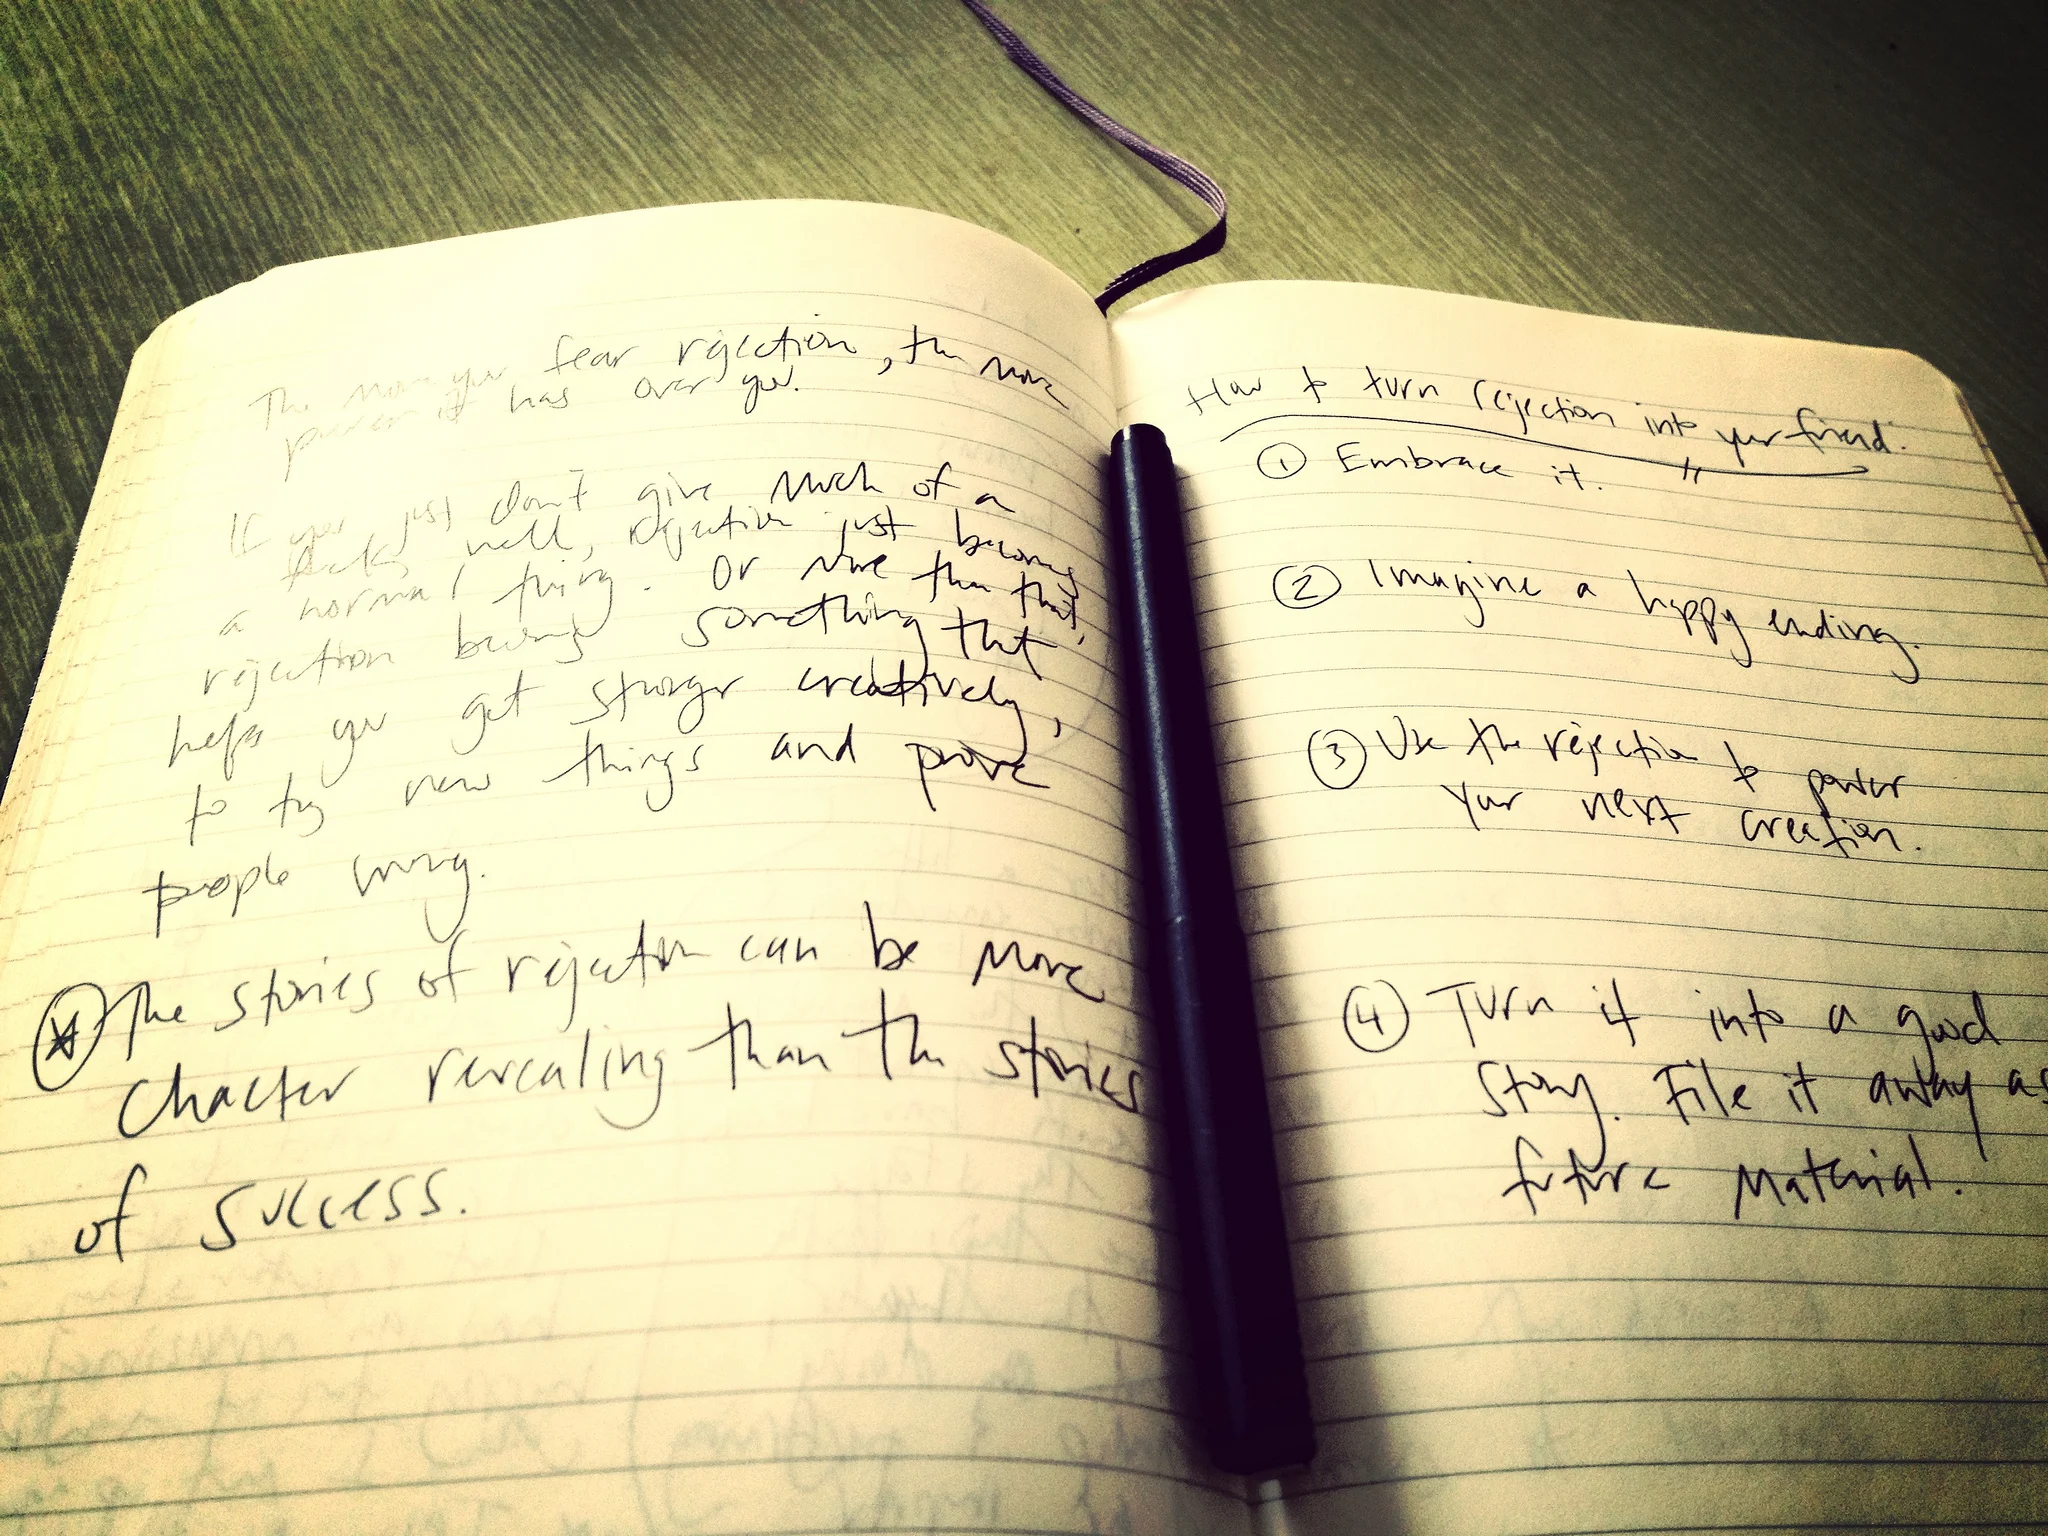 The more you fear rejection, the more
power it has over you.
If you just don't give much of a
fuck, well, rejection just becomes
a normal thing. Or more than that,
rejection becomes something that
helps you get stronger creatively,
to try new things and prove
people wrong.
The stories of rejection can be more
chacter revealing than the stories
of success.
How to turn rejection into your friend.
① Embrace it.
② Imagine a happy ending.
③ Use the rejection to power
your next creation.
④ Turn it into a good
story. File it away as
future material.